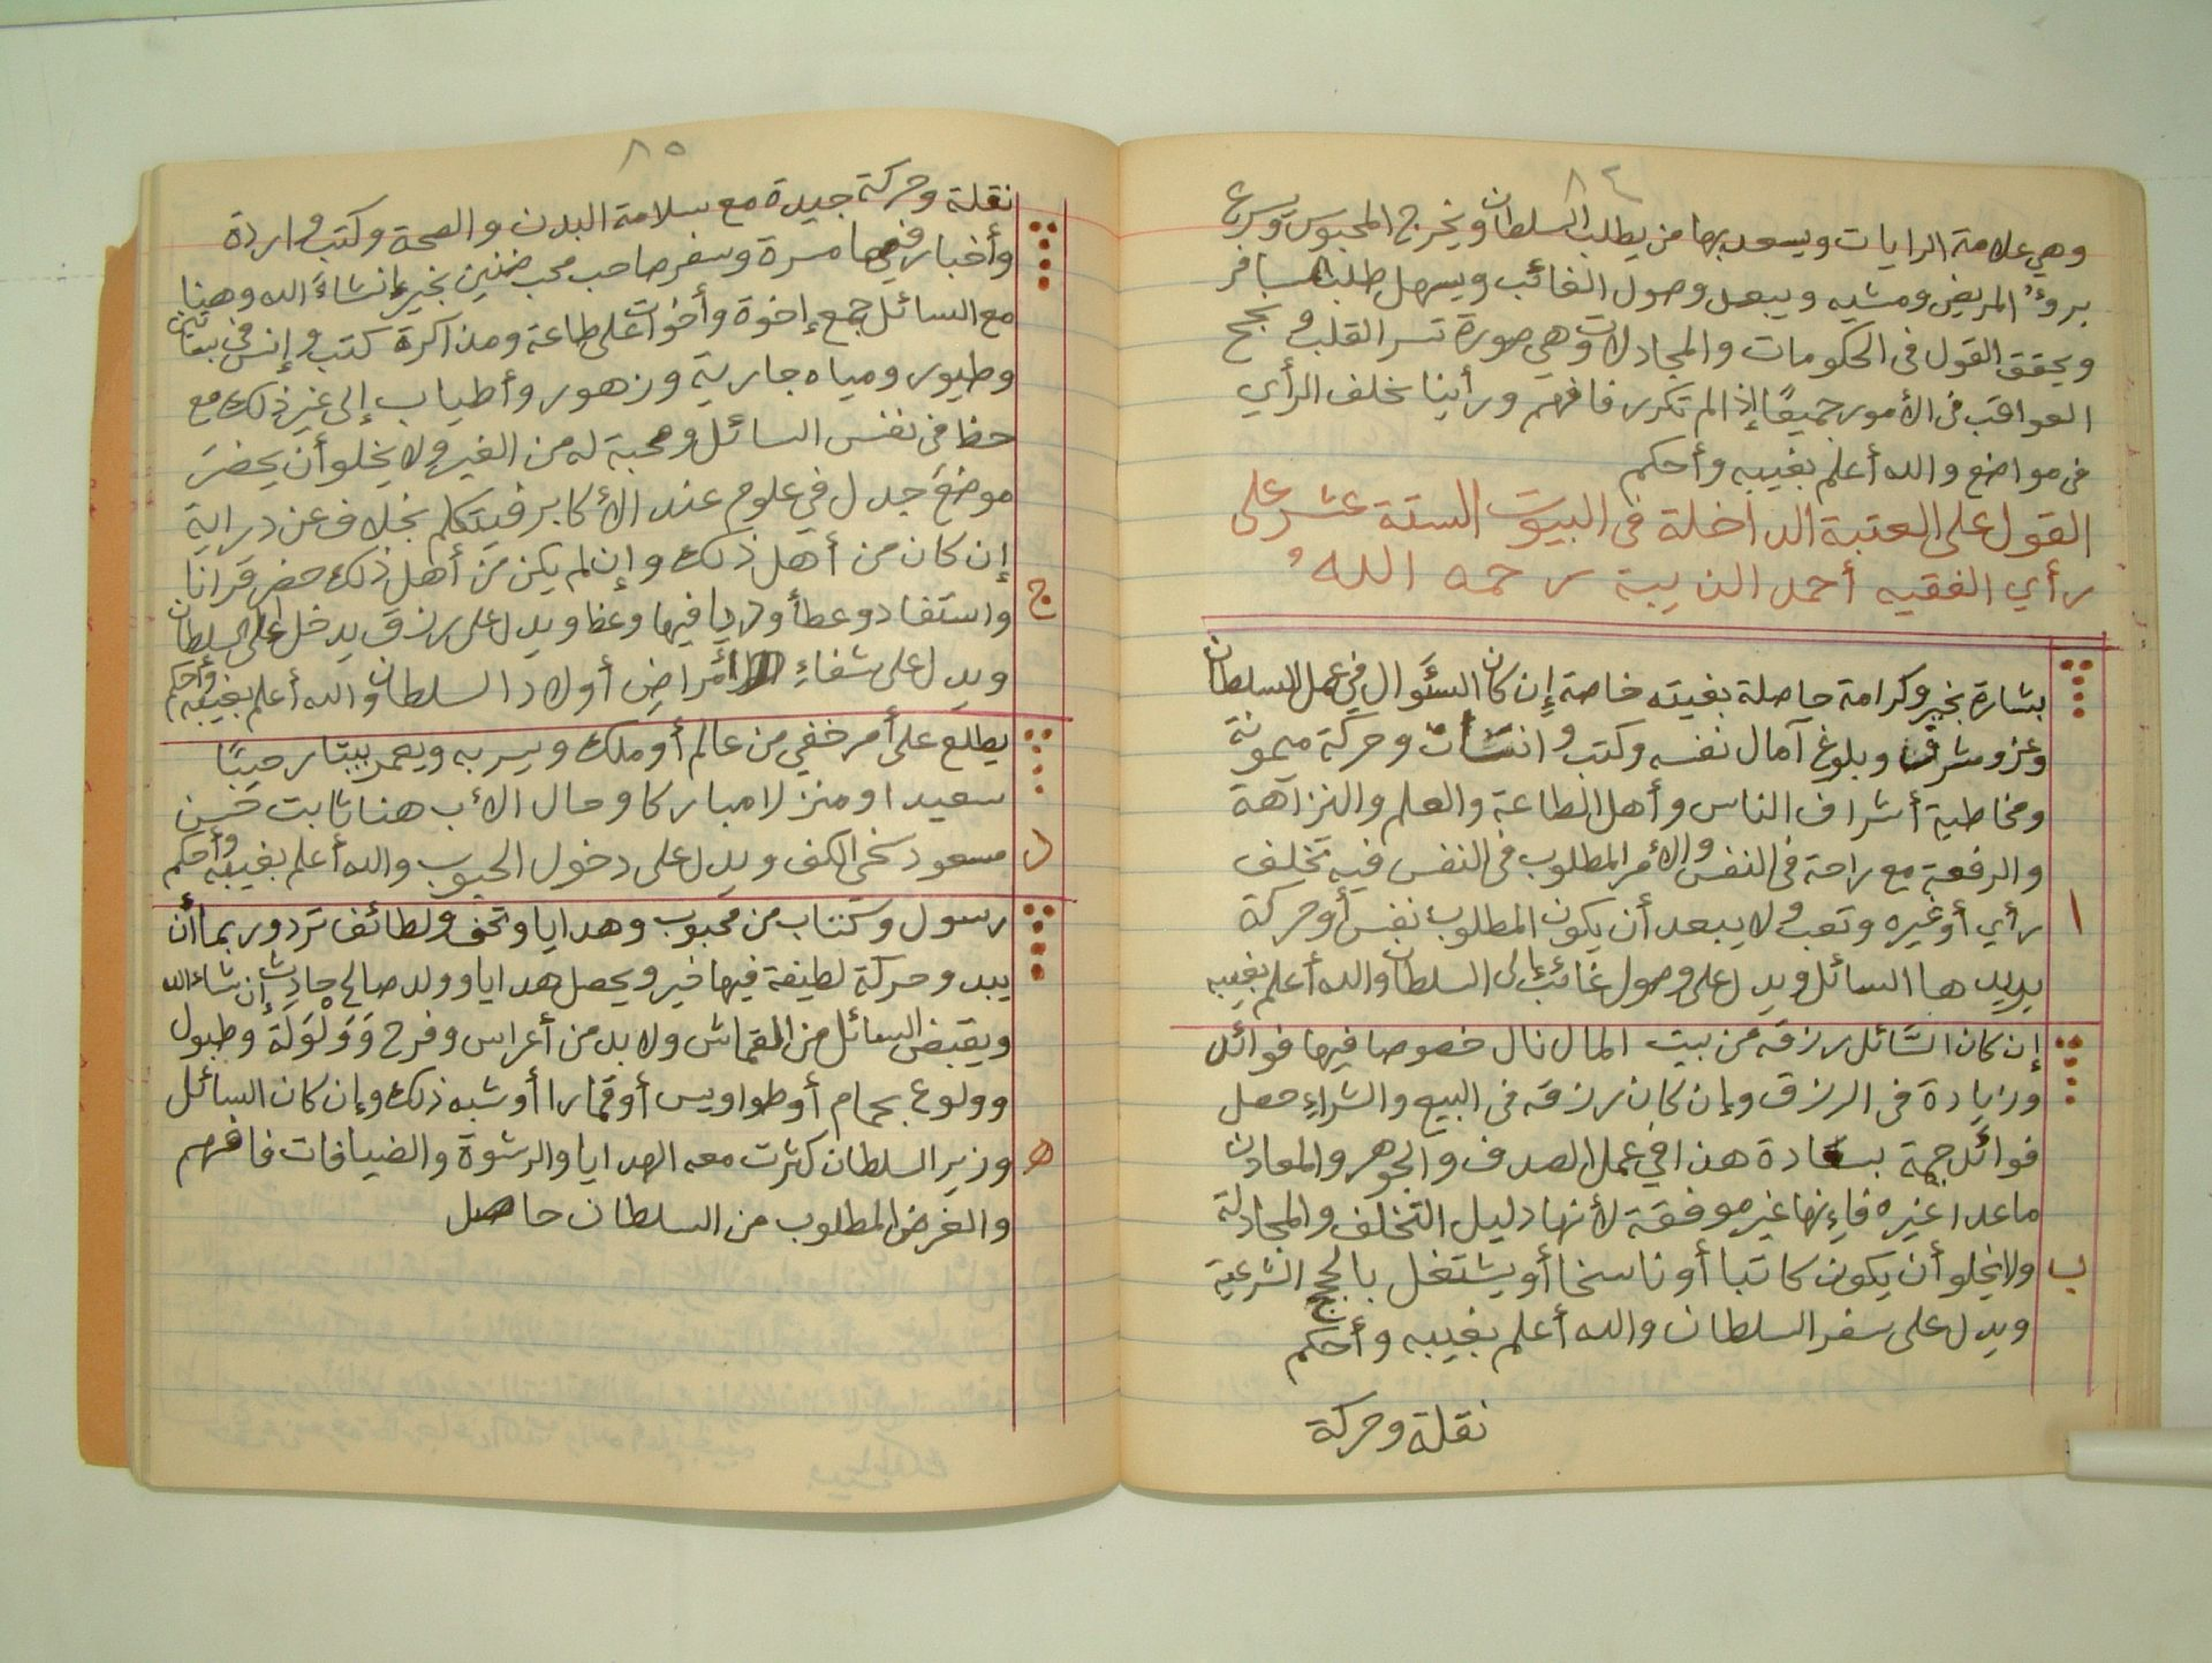 ٨٤
وهي علامة الرايات ويسعد بها من يطلب السلطان ويخرج المحبوس ويسرع
بروءُ المريض ومشيه ويبعد وصول الغائب ويسهل طلب المسافر
ويحقق القول فى الحكومات والمجادلات وهي صورة تسر القلب و نجح
العواقب فى الأمور جميعًا إذا لم تكرر فافهم ورأينا بخلف الرأي
فى مواضع والله أعلم بغيبه وأحكم
القول على العتبة الداخلة فى البيوت الستة عشر على
رأي الفقيه أحمد الذيبة رحمه الله
بشارة بخير وكرامة حاصلة بغيته خاصة إن كان السؤال فى عمل السلطان
وعز وشرف وبلوغ آمال نفسه وكتب و انشاآت وحركة ميمونة
ومخاطبة أشراف الناس وأهل الطاعة والعلم والنزاهة
والرفعة مع راحة فى النفس والأمر المطلوب فى النفس فيه تخلف
١ رأي أو غيره وتعب ولا يبعد أن يكون المطلوب نفس أو حركة
يريد ها السائل ويدل على وصول غائب إلى السلطان والله أعلم بغيبه
إن كان السَّائل رزقه من بيت المال نال خصوصا فيها فوائد
وزيادة فى الرزق وإن كان رزقه فى البيع والشراءِ حصل
فوائد جمة بسعادة هذا فى عمل الصدف والجوهر والمعادن
ما عدا غيره فإنها غير موفقة لأنها دليل التخلف والمجادلة
ب ولا يخلو أن يكون كاتبا أو ناسخا أو يشتغل بالحجج الشرعية
ويدل على سفر السلطان والله أعلم بغيبه وأحكم
نقلة وحركة
٨٥
نقلة وحركة جيدة مع سلامة البدن والصحة وكتب واردة
وأخبار فيها مسرة وسفر صاحب محب ضنين بخير إنشاءَ الله وهنا
مع السائل جمع إخوة وأخوات على طاعة ومذاكرة كتب وإنس فى بساتين
وطيور ومياه جارية وزهور وأطياب إلى غير ذلك مع
حظ فى نفس السائل ومحبة له من الغير ولا يخلو أن يحضرَ
موضعَ جدل في علوم عند الأكابر فيتكلم بخلاف عن دراية
إن كان من أهل ذلك وإن لم يكن من أهل ذلك حضر قرانا
ج واستفاد وعطأ فيها وعظا ويدل على رزق يدخل على السلطان
ويدل على شفاءِ أمراض أولاد السلطان والله أعلم بغيبه وأحكم
يطلع على أمر خفي من عالم أو ملك ويسر به ويعمر بيتا رحيبًا
سعيدا ومنزلا مباركا وحال الأب هنا ثابت حسن
د مسعود سخى الكف ويدل على دخول الحبوب والله أعلم بغيبه وأحكم
رسول وكتاب من محبوب وهدايا وتحف ولطائف ترد وربما أن
يبد وحركة لطيفة فيها خير ويحصل هدايا وولد صالح حادث إن شاء الله
ويقبض السائل من القماش ولا بد من أعراس وفرح وَوَلْوَلَة وطبول
وولوع بحمام أو طواويس أو قمارا أو شبه ذلك وإن كان السائل
ه وزير السلطان كثرت معه الهدايا والرشوة والضيافات فافهم
والغرض المطلوب من السلطان حاصل